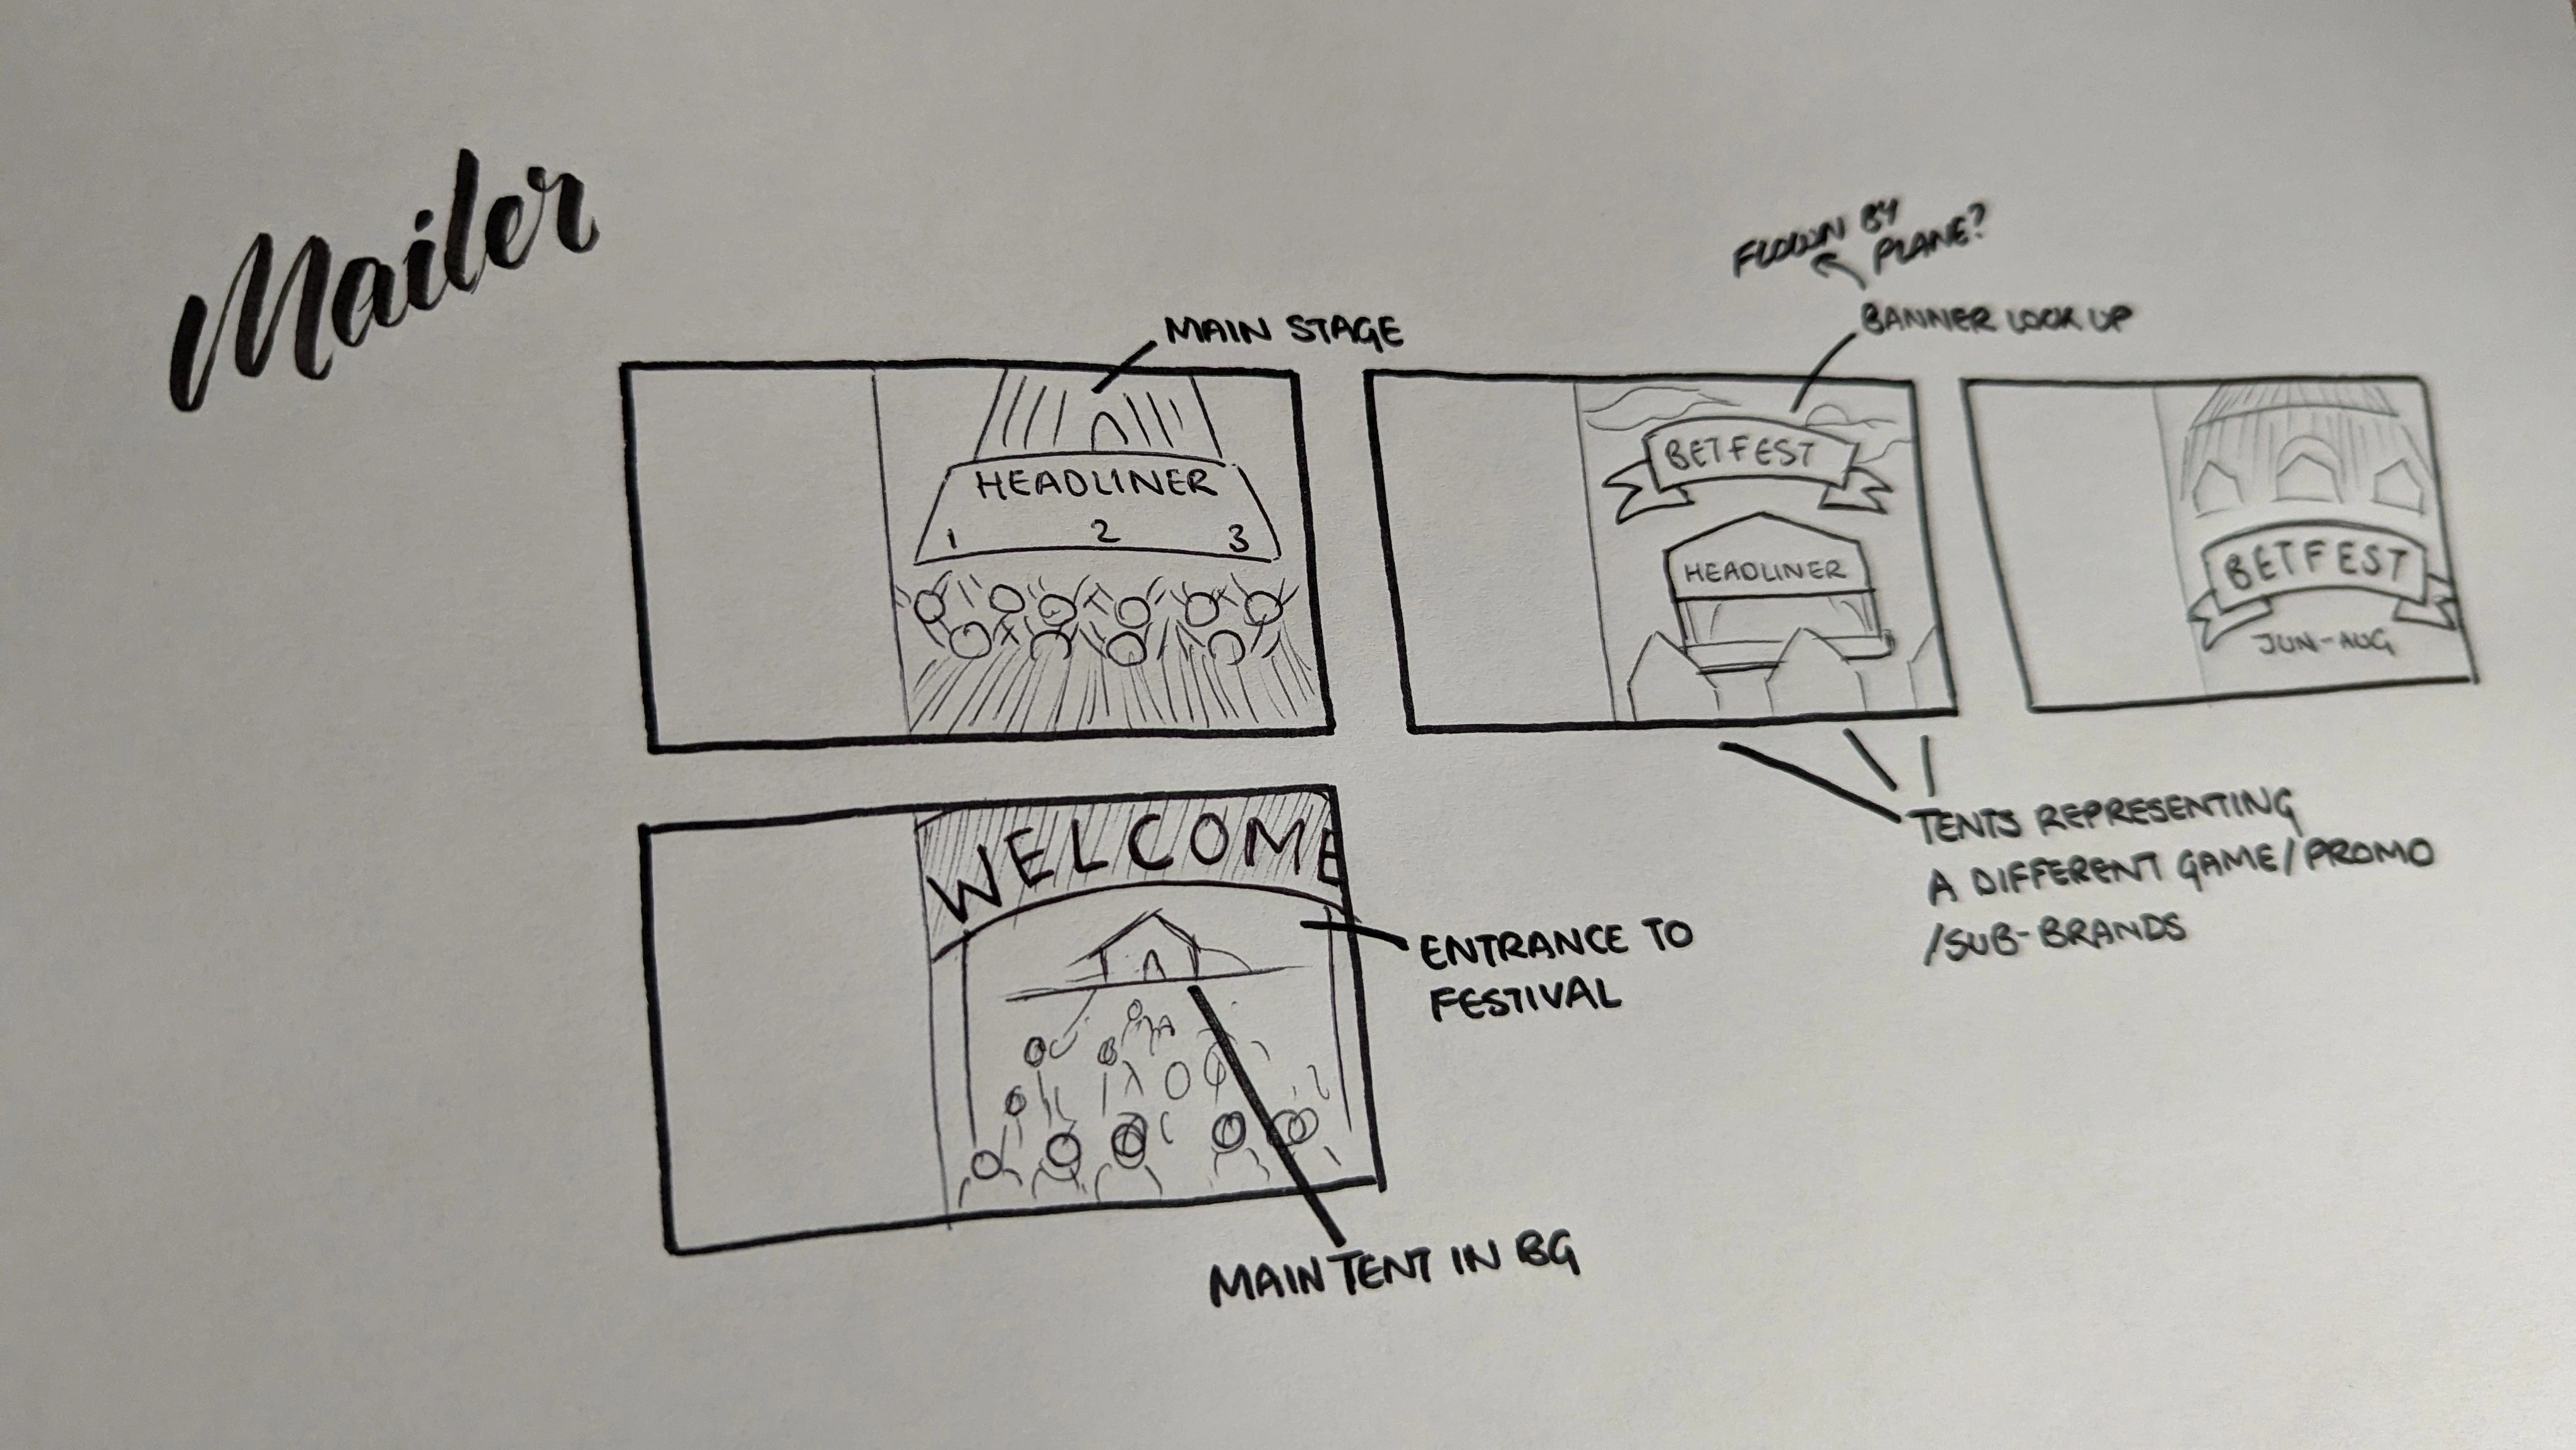 Mailer
FLOWN BY
PLANE?
MAIN STAGE
BANNER LOCK UP
HEADLINER
1 2 3
BETFEST
HEADLINER
BETFEST
JUN-AUG
WELCOME
TENTS REPRESENTING
A DIFFERENT GAME/PROMO
/SUB-BRANDS
ENTRANCE TO
FESTIVAL
MAIN TENT IN BG